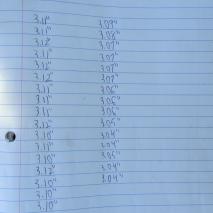 3.11"
3.11"
3.12"
3.11"
3.12"
3.12"
3.11"
3.11"
3.11"
3.12"
3.10"
3.11"
3.10"
3.12"
3.10"
3.10"
3.10"
3.09"
3.08"
3.07"
3.07"
3.07"
3.07"
3.06"
3.06"
3.06"
3.05"
3.04"
3.04"
3.05"
3.04"
3.04"